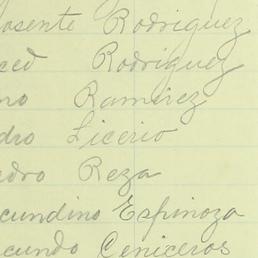 osente Rodriguez
ced Rodriguez
no Ramirez
dro Licerio
edro Reza
cundino Espinoza
cundo Ceniceros